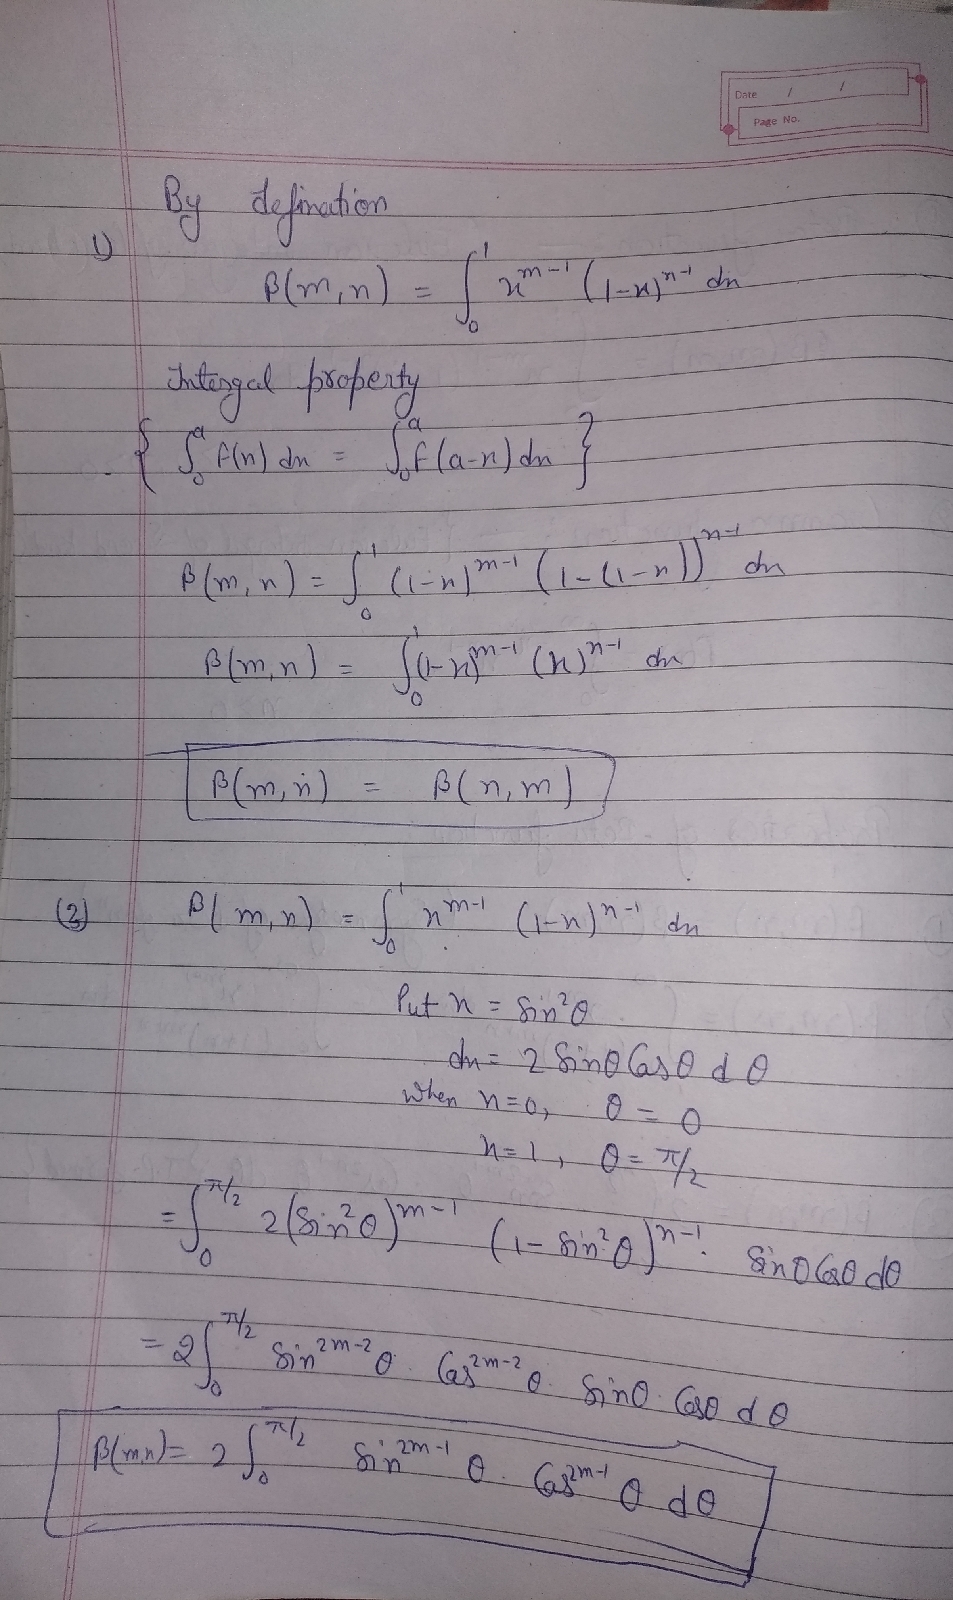 Date / /
Page No.
By defination
1)
β(m,n) = ∫₀¹ x^{m-1} (1-x)^{n-1} dx
Intergal property
{ ∫₀ᵃ f(x) dx = ∫₀ᵃ f(a-x) dx }
β(m,n) = ∫₀¹ (1-x)^{m-1} (1-(1-x))^{n-1} dx
β(m,n) = ∫₀¹ (1-x)^{m-1} (x)^{n-1} dx
β(m,n) = β(n,m)
(2) β(m,n) = ∫₀¹ x^{m-1} (1-x)^{n-1} dx
Put x = Sin²θ
dx = 2 Sinθ Cosθ dθ
When x=0, θ = 0
x=1, θ = π/2
= ∫₀^{π/2} 2(Sin²θ)^{m-1} (1-Sin²θ)^{n-1}. Sinθ Cosθ dθ
= 2∫₀^{π/2} Sin^{2m-2}θ. Cos^{2m-2}θ. Sinθ. Cosθ dθ
β(m,n) = 2∫₀^{π/2} Sin^{2m-1}θ. Cos^{2m-1}θ dθ